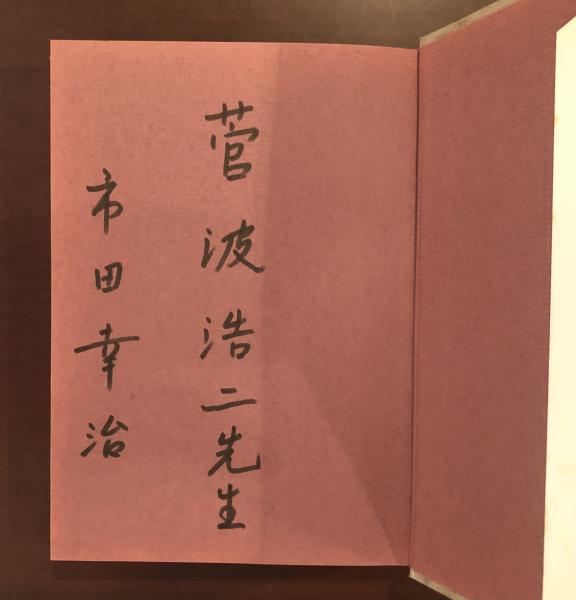 菅波浩二先生
市田幸治